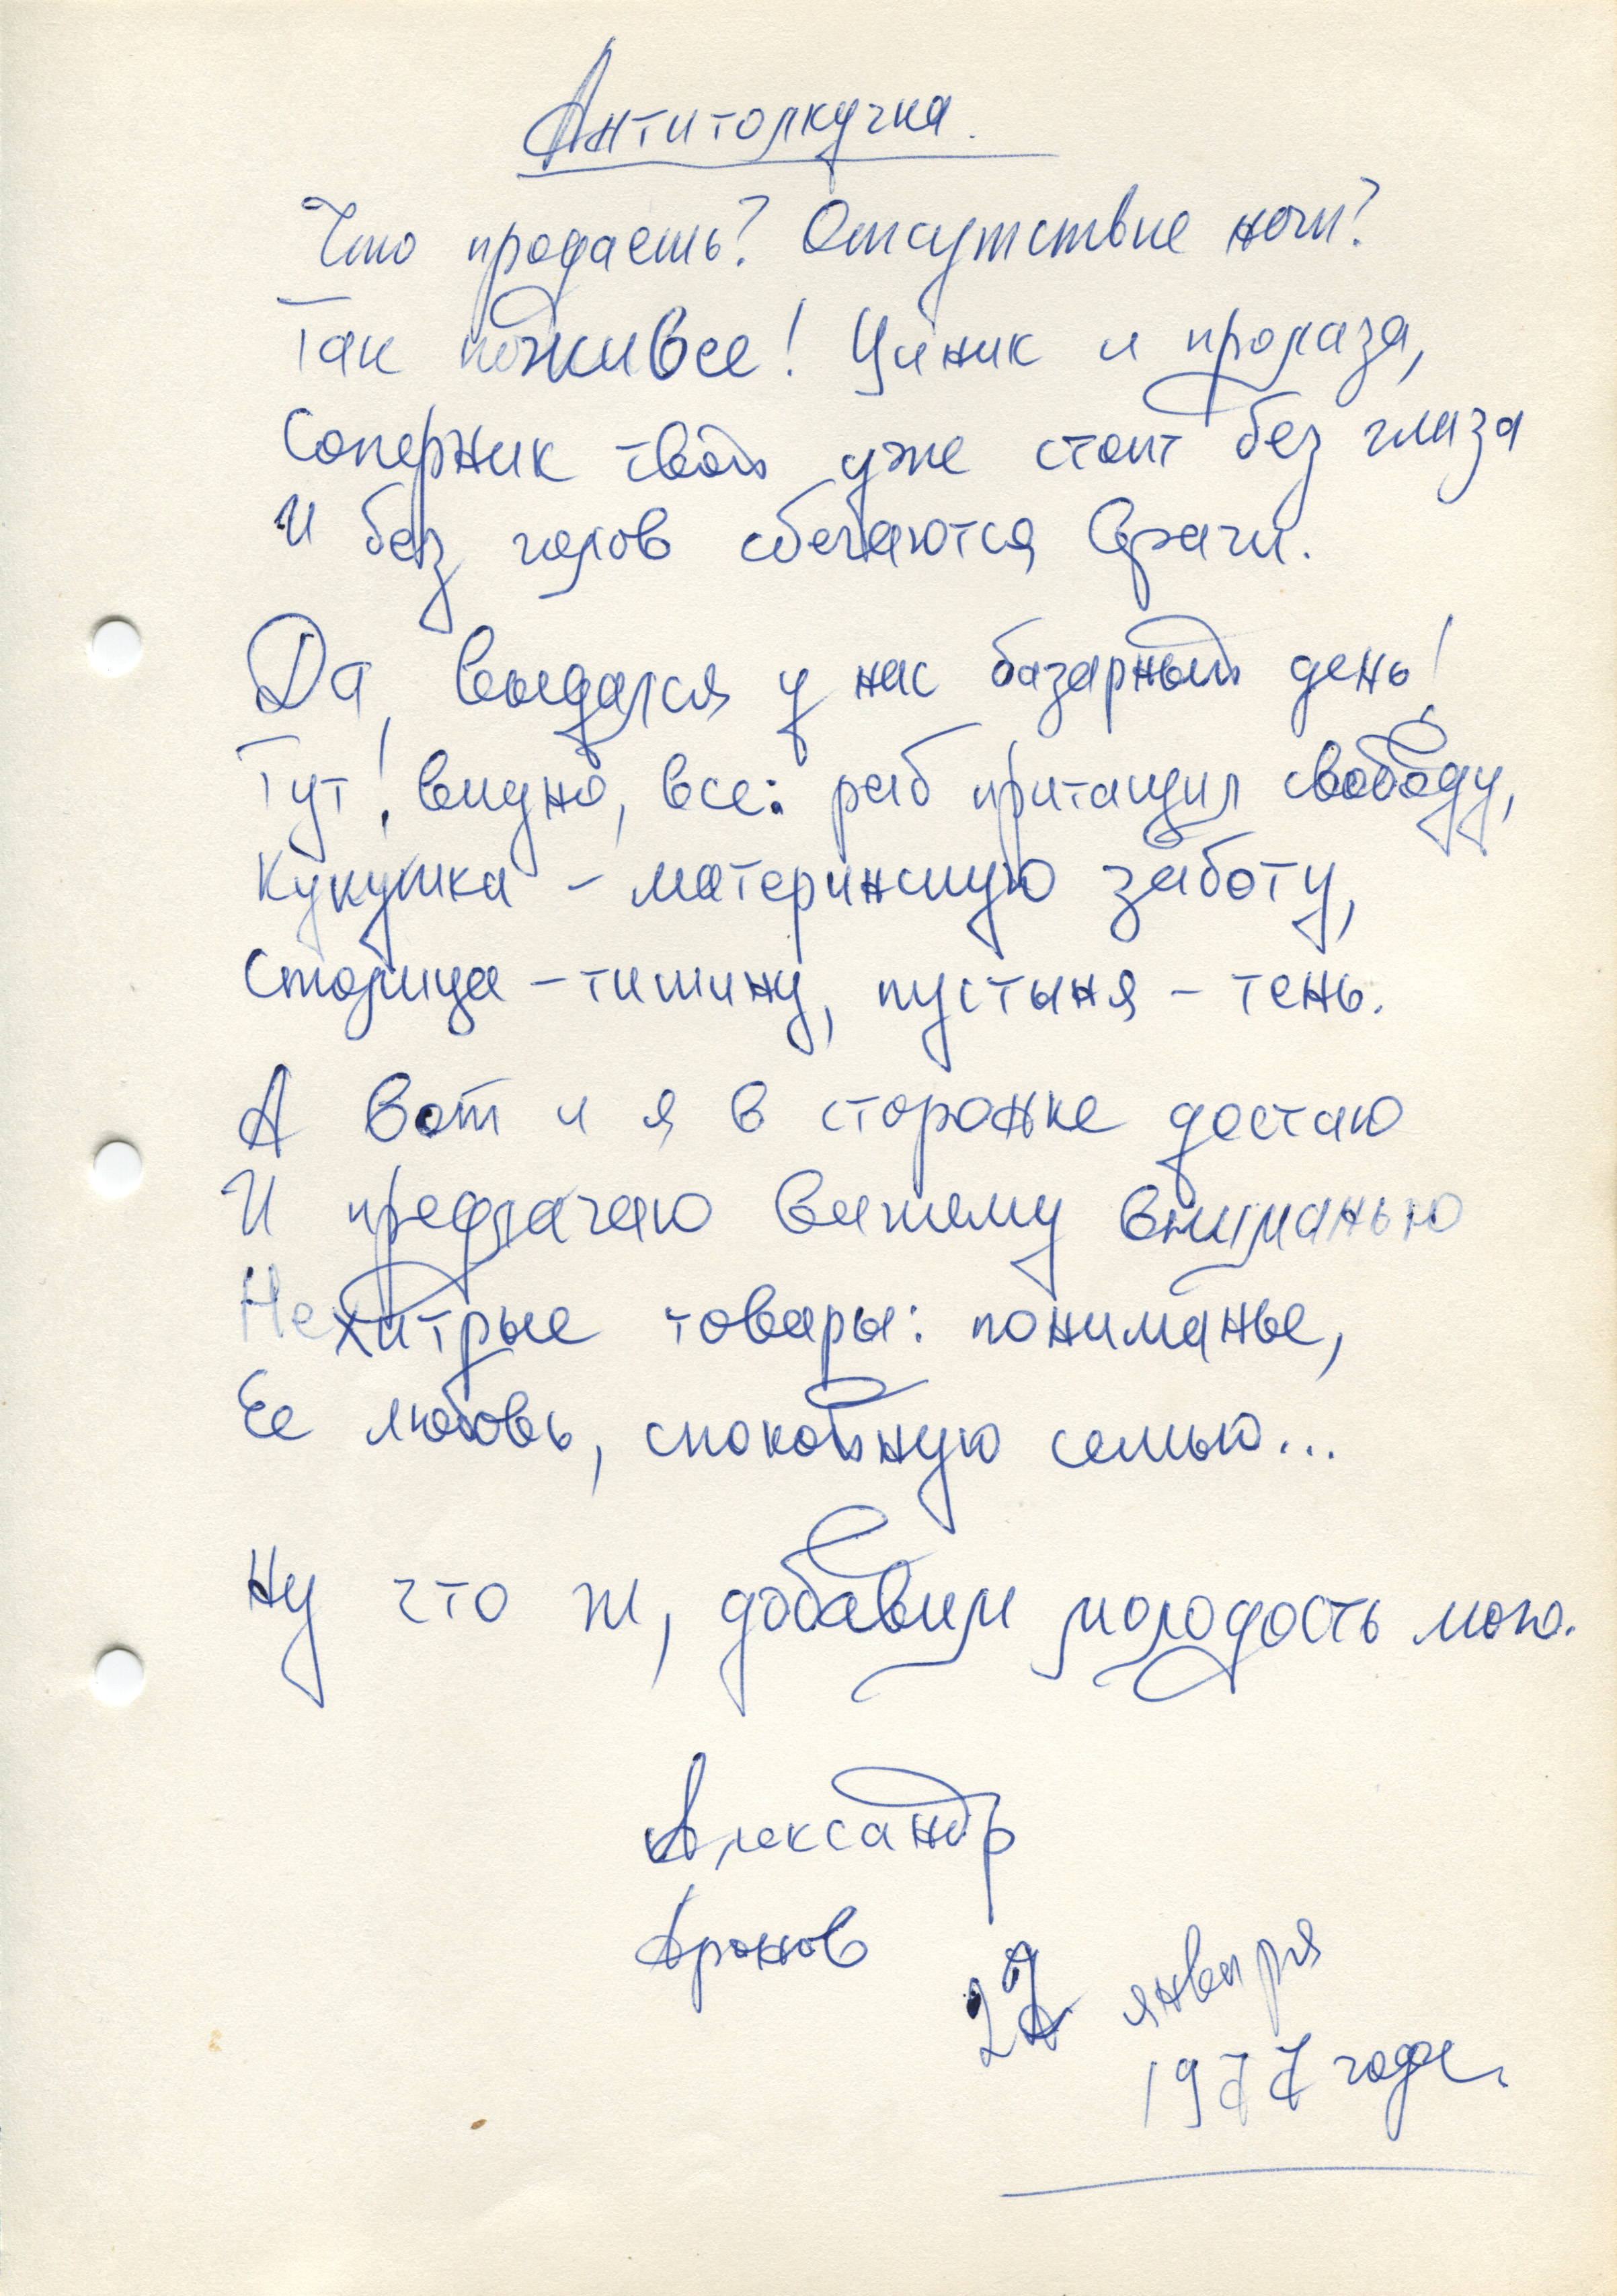 Антитолкучка.
Что продаешь? Отсутствие ночи?
Так поживее! Циник и пролаза,
Соперник твой уже стоит без глаза
И без голов сбегаются врачи.
Да, выдался у нас базарный день!
Тут! видно, все: раб притащил свободу,
Кукушка – материнскую заботу,
Столица – тишину, пустыня – тень.
А вот и я в сторонке достаю
И предлагаю вашему вниманью
Нехитрые товары: пониманье,
Ее любовь, спокойную семью...
Ну что ж, добавим молодость мою.
Александр
Аронов
27 января
1977 года.